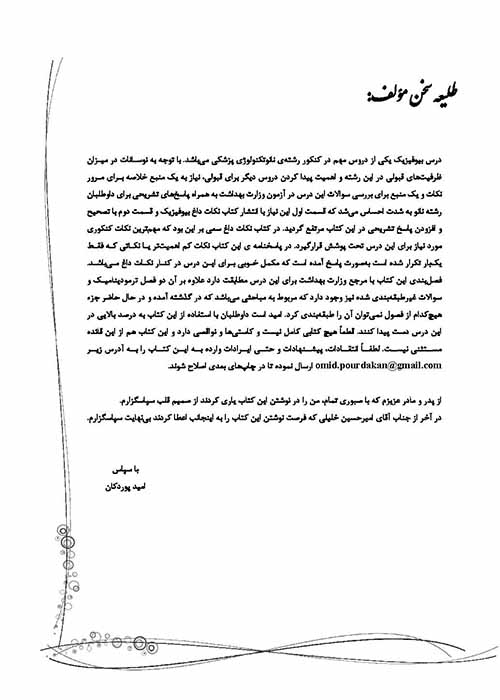 طلیعه سخن مؤلف:
درس بیوفیزیک یکی از دروس مهم در کنکور رشته‌ی نانوتکنولوژی پزشکی می‌باشد. با توجه به نوسانات در میزان
ظرفیت‌های قبولی در این رشته و اهمیت پیدا کردن دروس دیگر برای قبولی، نیاز به یک منبع خلاصه برای مرور
نکات و یک منبع برای بررسی سوالات این درس در آزمون وزارت بهداشت به همراه پاسخ‌های تشریحی برای داوطلبان
رشته نانو به شدت احساس می‌شد که قسمت اول این نیاز با انتشار کتاب نکات داغ بیوفیزیک و قسمت دوم با تصحیح
و افزودن پاسخ تشریحی در این کتاب مرتفع گردید. در کتاب نکات داغ سعی بر این بود که مهم‌ترین نکات کنکوری
مورد نیاز برای این درس تحت پوشش قرارگیرد. در پاسخنامه ی این کتاب نکات کم اهمیت‌تر یا نکاتی که فقط
یکبار تکرار شده است به‌صورت پاسخ آمده است که مکمل خوبی برای این درس در کنار نکات داغ می‌باشد.
فصل‌بندی این کتاب با مرجع وزارت بهداشت برای این درس مطابقت دارد علاوه بر آن دو فصل ترمودینامیک و
سوالات غیرطبقه‌بندی شده نیز وجود دارد که مربوط به مباحثی می‌باشد که در گذشته آمده و در حال حاضر جزء
هیچ‌کدام از فصول نمی‌توان آن را طبقه‌بندی کرد. امید است داوطلبان با استفاده از این کتاب به درصد بالایی در
این درس دست پیدا کنند. قطعاً هیچ کتابی کامل نیست و کاستی‌ها و نواقصی دارد و این کتاب هم از این قائده
مستثنی نیست. لطفاً انتقادات، پیشنهادات و حتی ایرادات وارده به این کتاب را به آدرس زیر
omid.pourdakan@gmail.com ارسال نموده تا در چاپ‌های بعدی اصلاح شوند.
از پدر و مادر عزیزم که با صبوری تمام، من را در نوشتن این کتاب یاری کردند از صمیم قلب سپاسگزارم.
در آخر از جناب آقای امیرحسین خلیلی که فرصت نوشتن این کتاب را به اینجانب اعطا کردند بی‌نهایت سپاسگزارم.
با سپاس
امید پوردکان